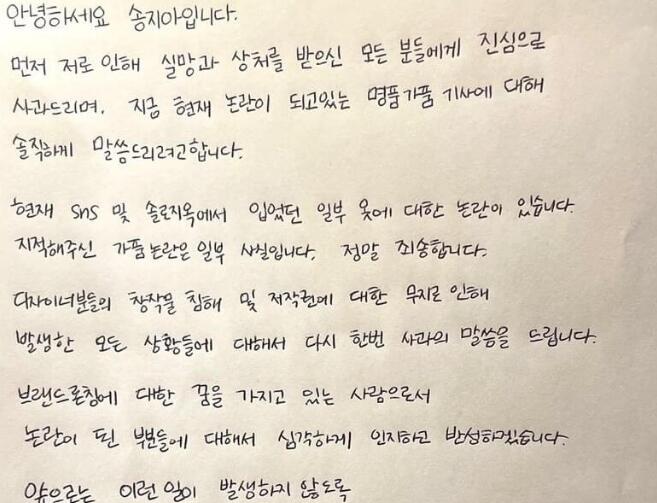 안녕하세요 송지아입니다.
먼저 저로 인해 실망과 상처를 받으신 모든 분들에게 진심으로
사과드리며, 지금 현재 논란이 되고있는 명품가품 기사에 대해
솔직하게 말씀드리려고합니다.
현재 sns 및 솔로지옥에서 입었던 일부 옷에 대한 논란이 있습니다.
지적해주신 가품논란은 일부 사실입니다. 정말 죄송합니다.
디자이너분들의 창작물 침해 및 저작권에 대한 무지로 인해
발생한 모든 상황들에 대해서 다시 한번 사과의 말씀을 드립니다.
브랜드론칭에 대한 꿈을 가지고 있는 사람으로서
논란이 된 부분들에 대해서 심각하게 인지하고 반성하겠습니다.
앞으로는 이런 일이 발생하지 않도록